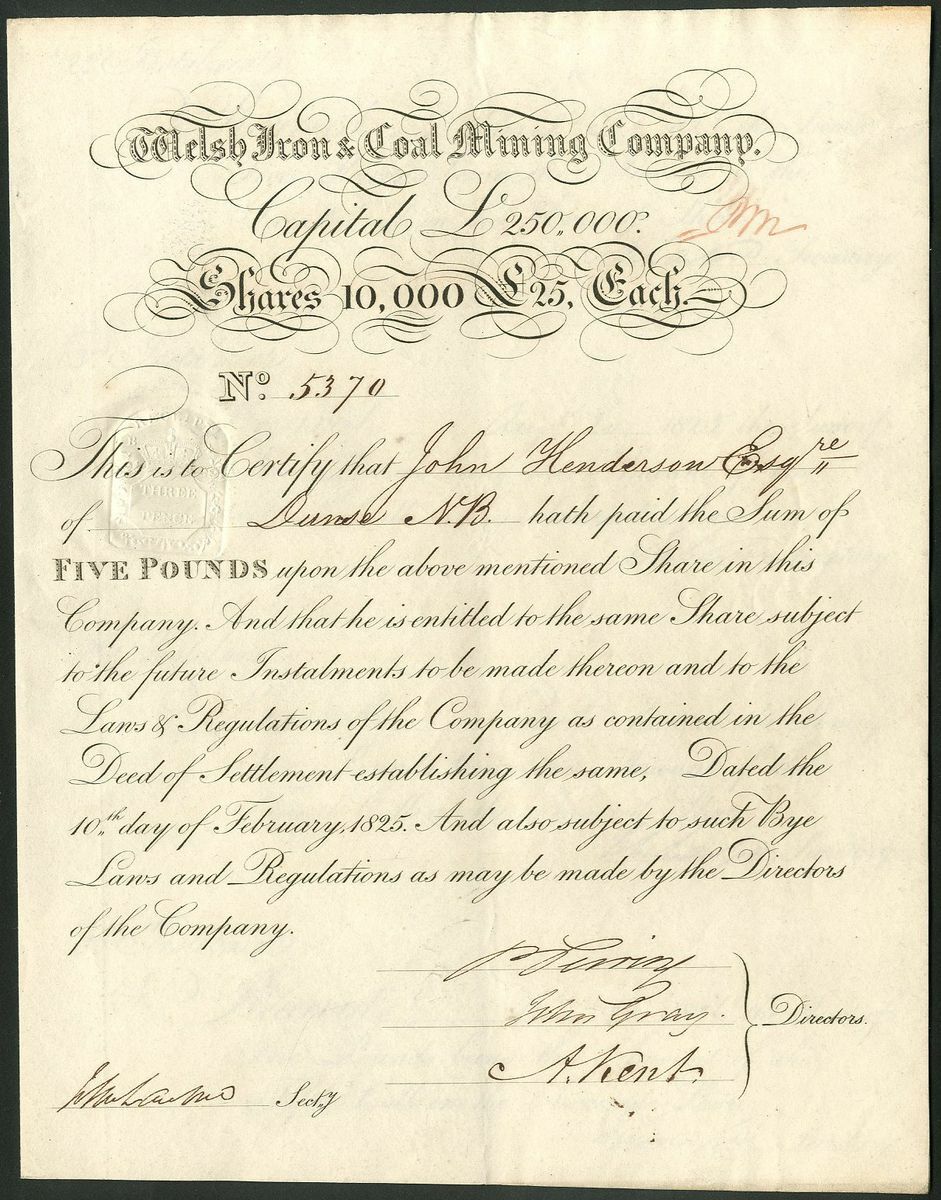 Welsh Iron & Coal Mining Company.
Capital £250,,000.
Shares 10,000 £25, Each.
No. 5370
This is to Certify that John Henderson Esqre
of Dunse N.B. hath paid the Sum of
THREE
PENCE
FIVE POUNDS upon the above mentioned Share in this
Company. And that he is entitled to the same Share subject
to the future Instalments to be made thereon and to the
Laws & Regulations of the Company as contained in the
Deed of Settlement establishing the same, Dated the
10,,th day of February, 1825. And also subject to such Bye
Laws and Regulations as may be made by the Directors
of the Company.
John Gray.
Directors.
A. Kent.
Secty